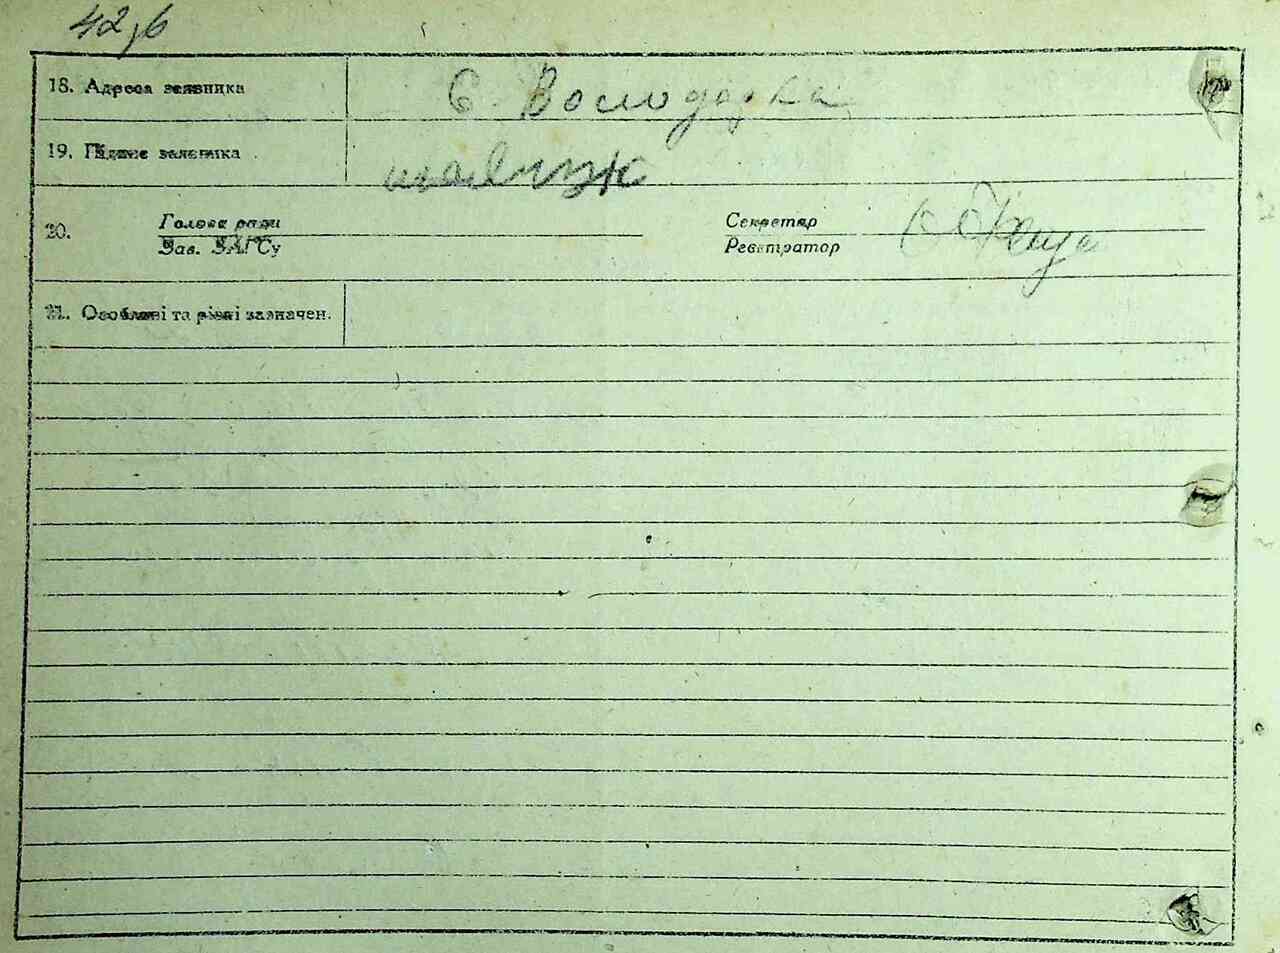 42,б
18. Адреса заявника
с. Володарка
19. Підпис заявника
20.
Голова ради
Секретар
Зав. ЗАГСу
Реєстратор
21. Особливі та різні зазначен.